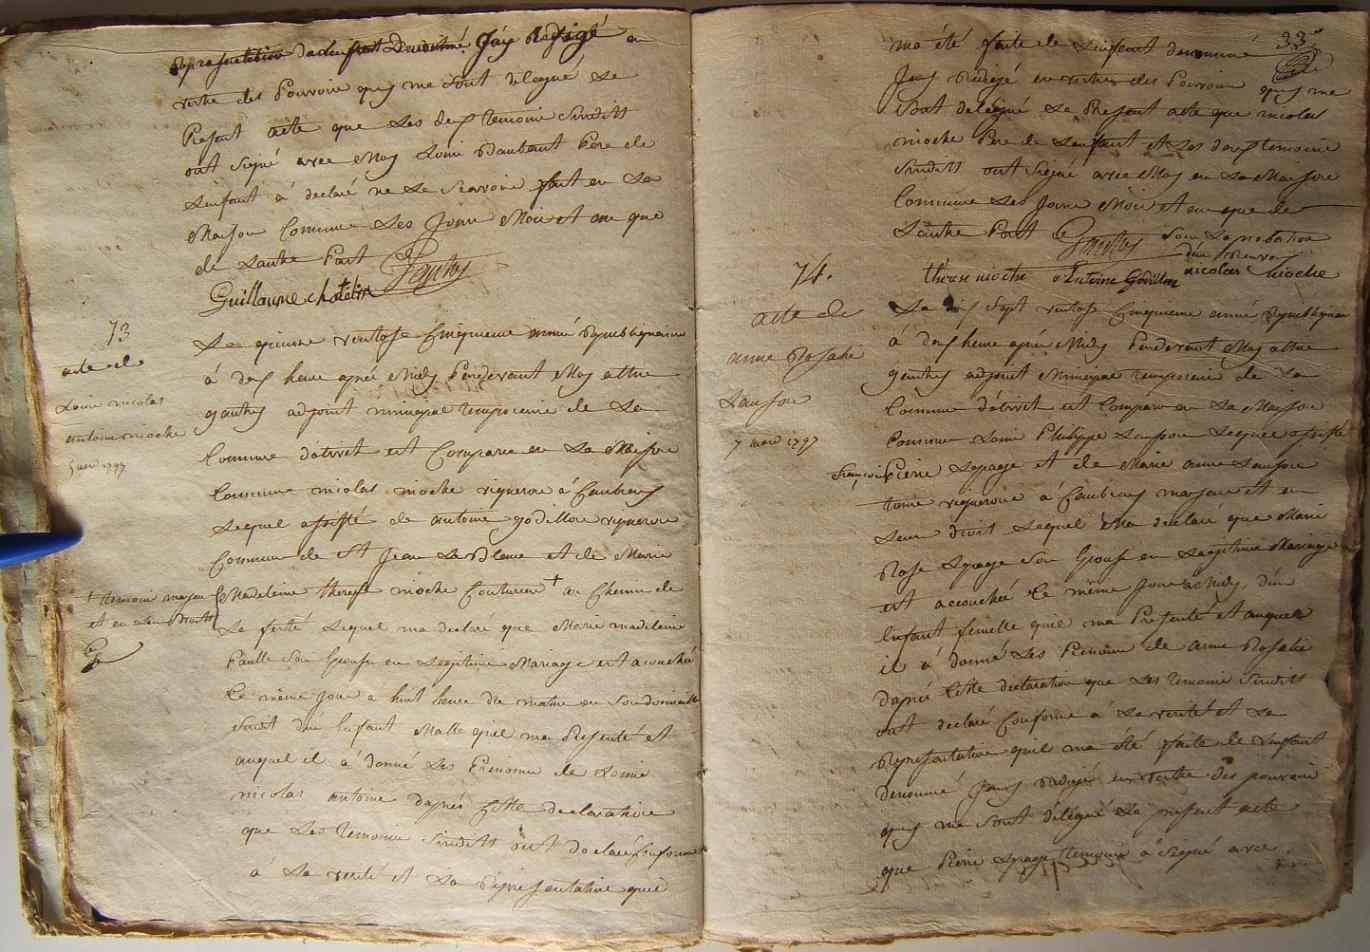 representation de lenfant denommé Jay Redigé a
vertu des Pouvoirs quy me sont delegué Le
Present acte que Les deux temoins Susditt
ont signé avec Moy Louis Daubant Pere de
Lenfant á declaré ne Le Scavoir fait en La
Maison Commune Les Jours Mois et an que
de Lautre Part Gauthes
Guillaume chatelin
73
acte de
Louis nicolas
antoine nioche
5 mars 1797
Le quinze ventose Cinquieme anné Republiquaine
á deux heure aprés Midy Pardevant Moy
adjoint municipal temporaire de La
Commune est Comparu en La Maison
Commune nicolas nioche vigneron á
Lequel assisté de antoine godillon vigneron
Commune de St Jean Le Blanc et de Marie
Madeleine therese nioche Couturiere + au Chemin de
+ temoins majeur
et en Leur droits
La ferté Lequel ma declaré que Marie madeleine
Paulle Son Epouse en Legitime Mariage est acouchée
Ce même Jour a huit heure du matin en Son domicille
dun Enfant Malle quil ma Presenté et
auquel il á donné Les Prenoms de Louis
nicolas antoine daprés Cette declaration
que Les temoins Susditt ont declaré Conforme
á La verité et La Representation quil
33
ma été faite de Lenfant denommé
Jay Redigé en vertu des Pouvoirs quy me
Sont delegué Le Present acte que nicolas
nioche Pere de Lenfant et Les deux temoins
Susditt ont Signé avec Moy en La Maison
Commune Les Jours Mois et an que de
Lautre Part Gauthes Sous Laprobation
dun Renvoy
thérese nioche Antoine Godillon nicolas Nioche
74.
acte de
anne Rosalie
7 mars 1797
Le dix Sept ventose Cinquieme anné Republiquaine
á deux heure aprés Midy Pardevant Moy
adjoint Municipal temporaire de La
Commune est Comparu en La Maison
Commune Louis Philippe Lequel assisté
françois Pierre Lepage et de Marie anne
tous vignerons á majeur et en
Leur droit Lequel Ma declaré que Marie
Rose Lepage Son Epouse en Legitime Mariage
est accouchée Ce même Jour a Midy dun
Enfant femelle quil ma Presenté et auquel
il á donné Les Prenoms de anne Rosalie
daprés Cette declaration que Les temoins Susditt
ont declaré Conforme á La verité et La
Representation quil ma été faite de Lenfant
denommé Jay Redigé en vertu Des pouvoirs
quy me Sont délégué Le present acte
que Pierre Lepage temoins á Signé avec